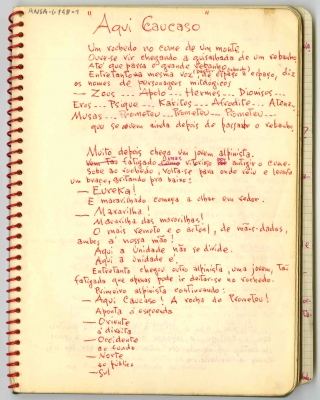 ANSA-6-768-1
"Aqui Caucaso"
Um rochedo no cume de um monte.
Ouve-se vir chegando a guisalhada de um rebanho
Até que passa o grande rebanho
Entretanto a mesma voz, de espaço a espaço, diz
os nomes de personagens mitológicos
— Zeus... Apolo... Hermes... Dionisos...
Eros... Psique... Karites... Afrodite... Atena...
Musas... Prometeu... Prometeu... Prometeu...
que se ouvem ainda depois de passado o rebanho.
Muito depois chega um jovem alpinista.
Vem tão fatigado vitorioso por atingir o cume.
Sobe ao rochedo, volta-se para onde veio e levanta
um braço, gritando pra baixo:
— Eureka!
E maravilhado começa a olhar em redor.
— Maravilha!
Maravilha das maravilhas!
O mais remoto e o actual, de mãos-dadas,
ambos à nossa mão!
Aqui a Unidade não se divide.
Aqui a unidade é.
Entretanto chegou outro alpinista, uma jovem, tão
fatigada que apenas pode ir deitar-se no rochedo.
Primeiro alpinista continuando:
— Aqui Caucaso! A rocha de Prometeu!
Aponta à esquerda
— Oriente
à direita
— Occidente
ao fundo
— Norte
ao público
— Sul